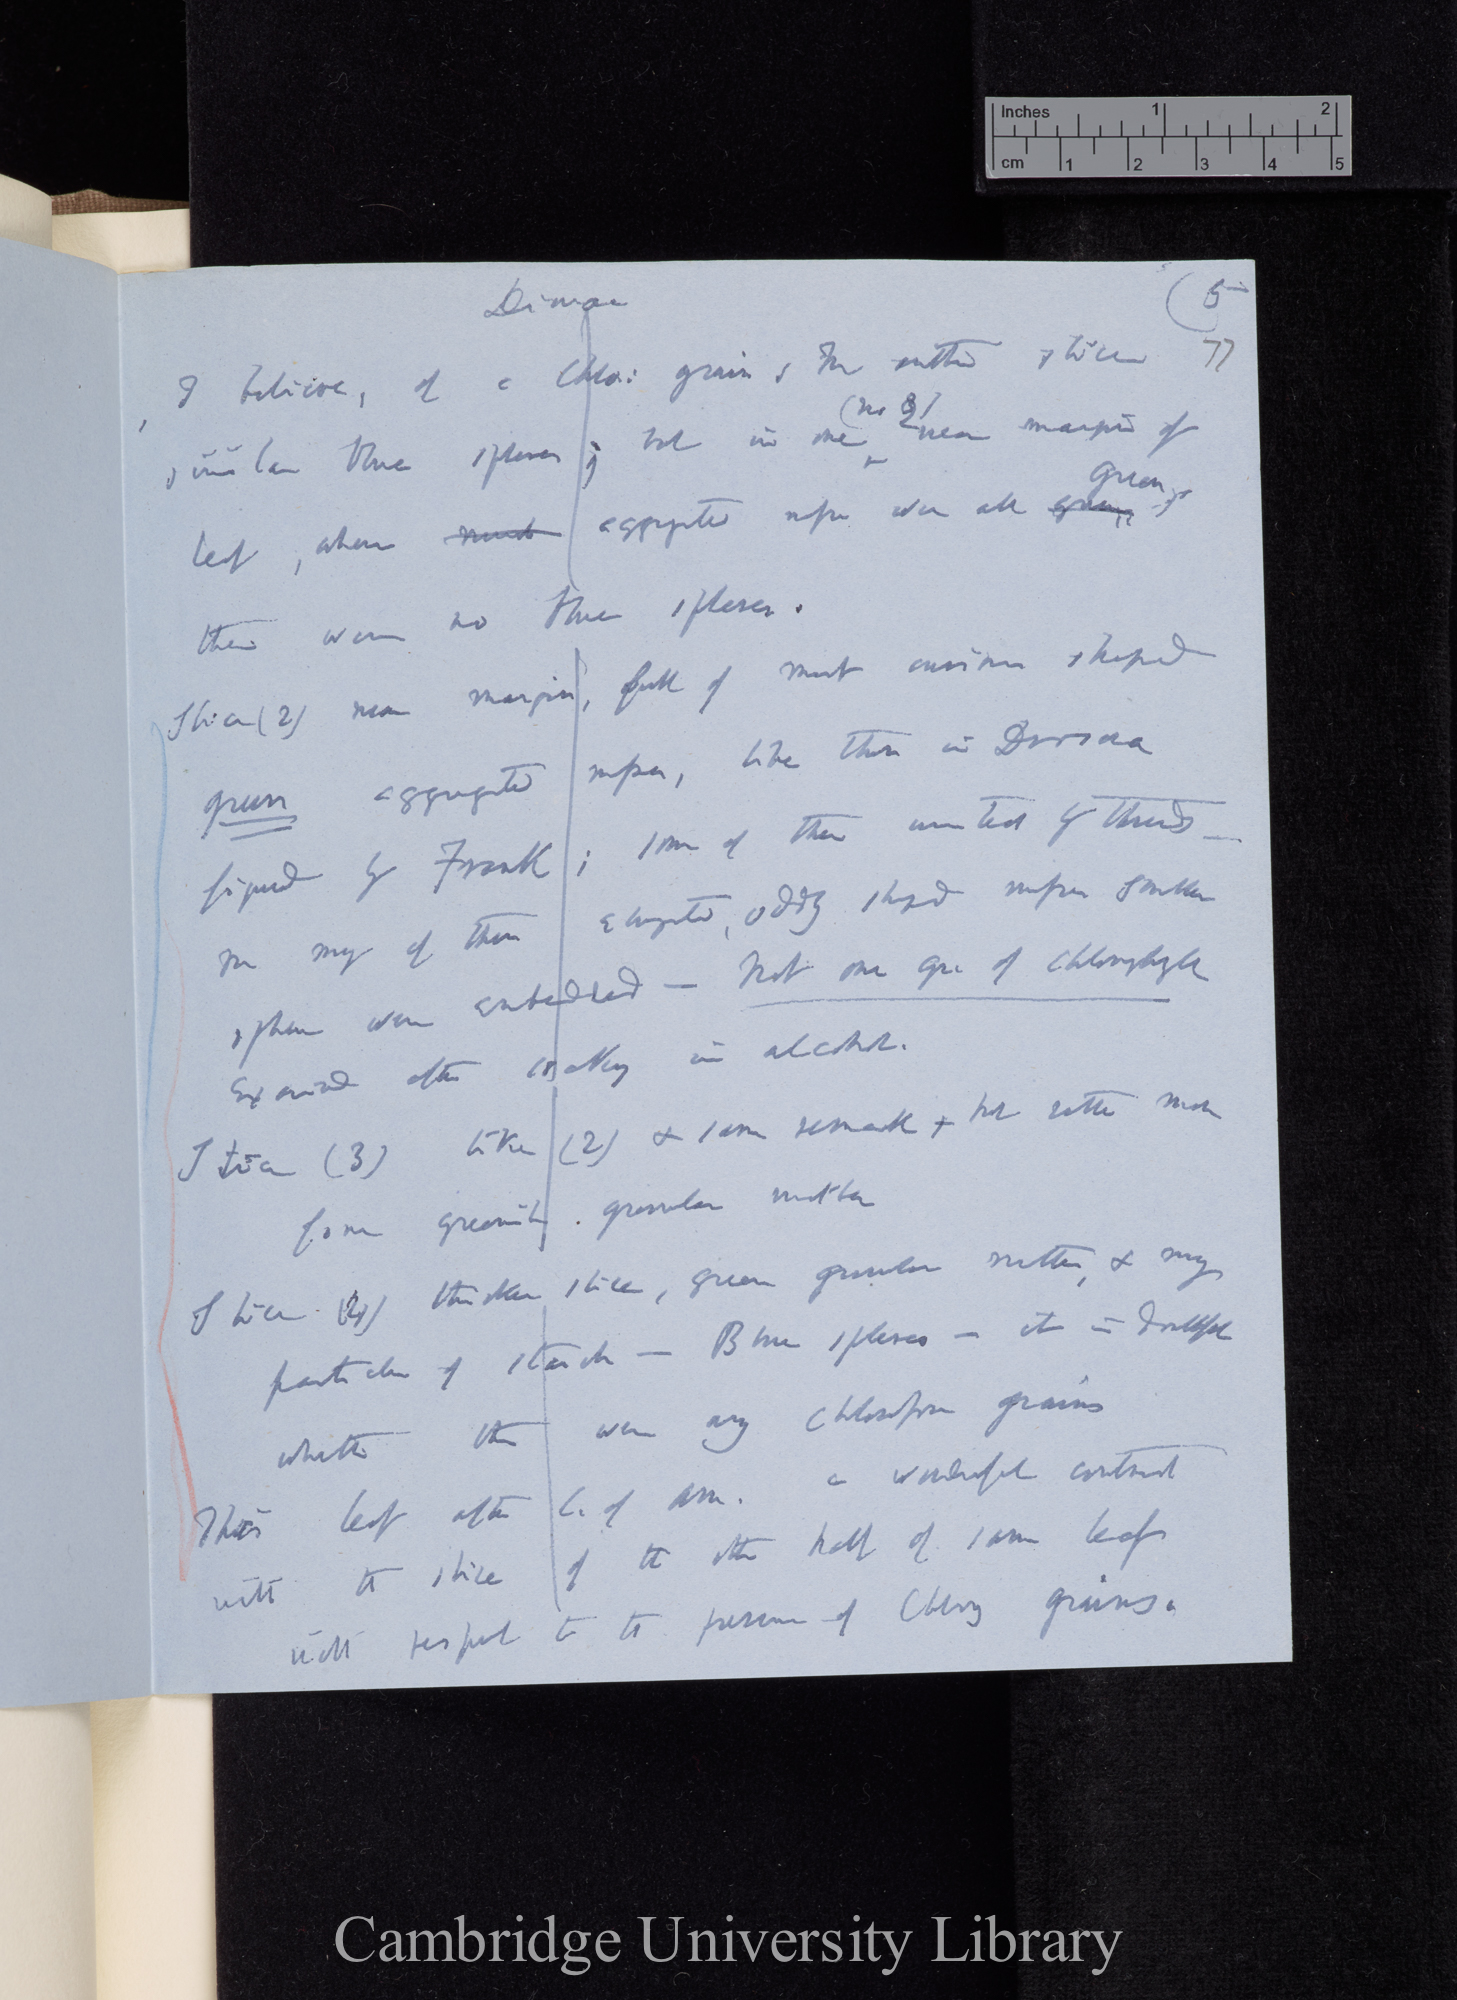 Inches 1 2
cm 1 2 3 4 5
Dionaea
(5
77
I believe, of a Chlo: grain, In another slice
(no 2)
similar blue spheres; but in one near margin of
green,
leaf, where much aggregated were all green
there were no blue spheres.
Slice (2) near margin, full of most curious shaped
green aggregated masses, like those in Drosera
figured by Frank; some of them united by threads —
In many of these aggregated, oddly shaped masses smaller
spheres were embedded — Not one grain of chlorophyll
Examined after soaking in alcohol.
Slice (3) like (2) & same remark, but rather more
fine greenish granular matter
Slice (4) thicker slice, green granular matter, & many
particles of starch — Blue spheres — it is doubtful
whether there were any chlorophyll grains
This leaf after C. of Am. a wonderful contrast
with the slice of the other half of same leaf
with respect to the presence of Chloroph grains.
Cambridge University Library